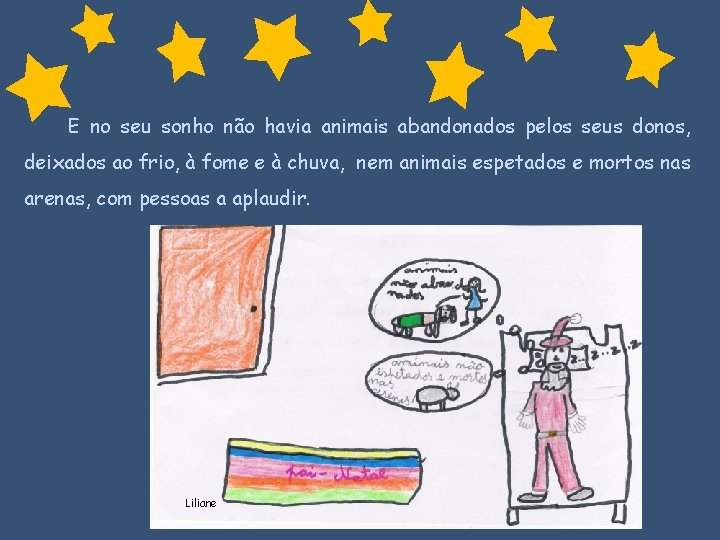 E no seu sonho não havia animais abandonados pelos seus donos,
deixados ao frio, à fome e à chuva, nem animais espetados e mortos nas
arenas, com pessoas a aplaudir.
animais
não aban do
nados
animais não
espetados e mortos
nas
arenas
z..z...z
pai-Natal
Liliane